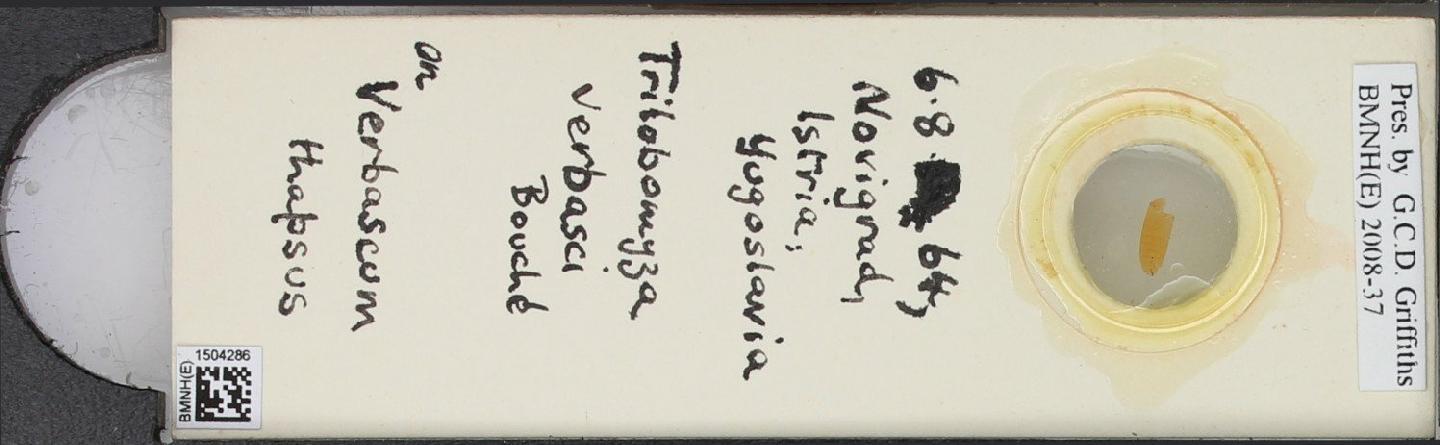 Pres. by G.C.D. Griffiths
BMNH(E) 2008-37
6.8 64,
Novigrad,
Istria,
Yugoslavia
Trilobomyza
verbasci
Bouché
on
Verbascum
thapsus
BMNH(E)
1504286